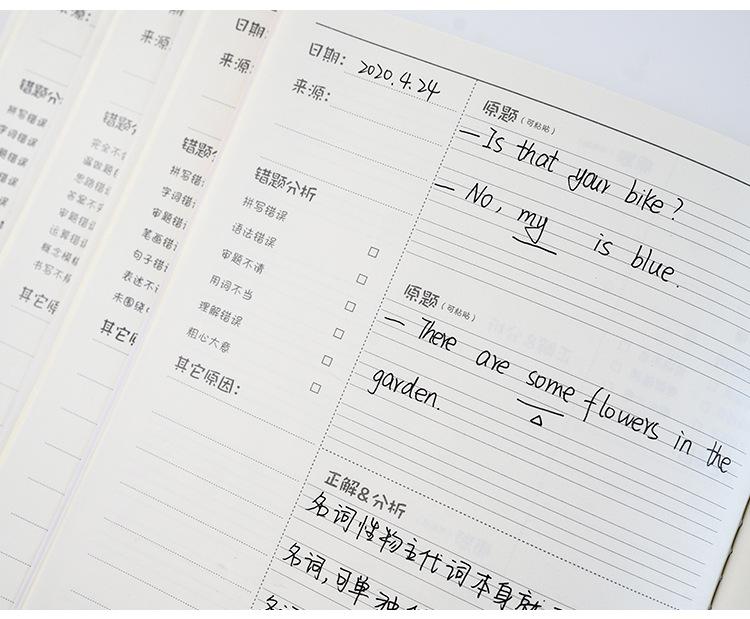 来源
错题分
拼写错误
字词错误
错误
完全不
思路错
答案不
审题错
运算错误
概念模糊
书写不
其它原
来源
错题
日期:
来源:
错题分
拼写错
字词错
审题错
笔画错
句子错
表述不
未围绕
其它原
日期: 2020.4.24
来源:
错题分析
拼写错误
语法错误
审题不请
用词不当
理解错误
粗心大意
其它原因:
原题(可粘贴)
— Is that your bike?
— No, my is blue.
原题(可粘贴)
— There are some flowers in the
garden.
正解&分析
名词性物主代词本身就
名词,可单独
名词